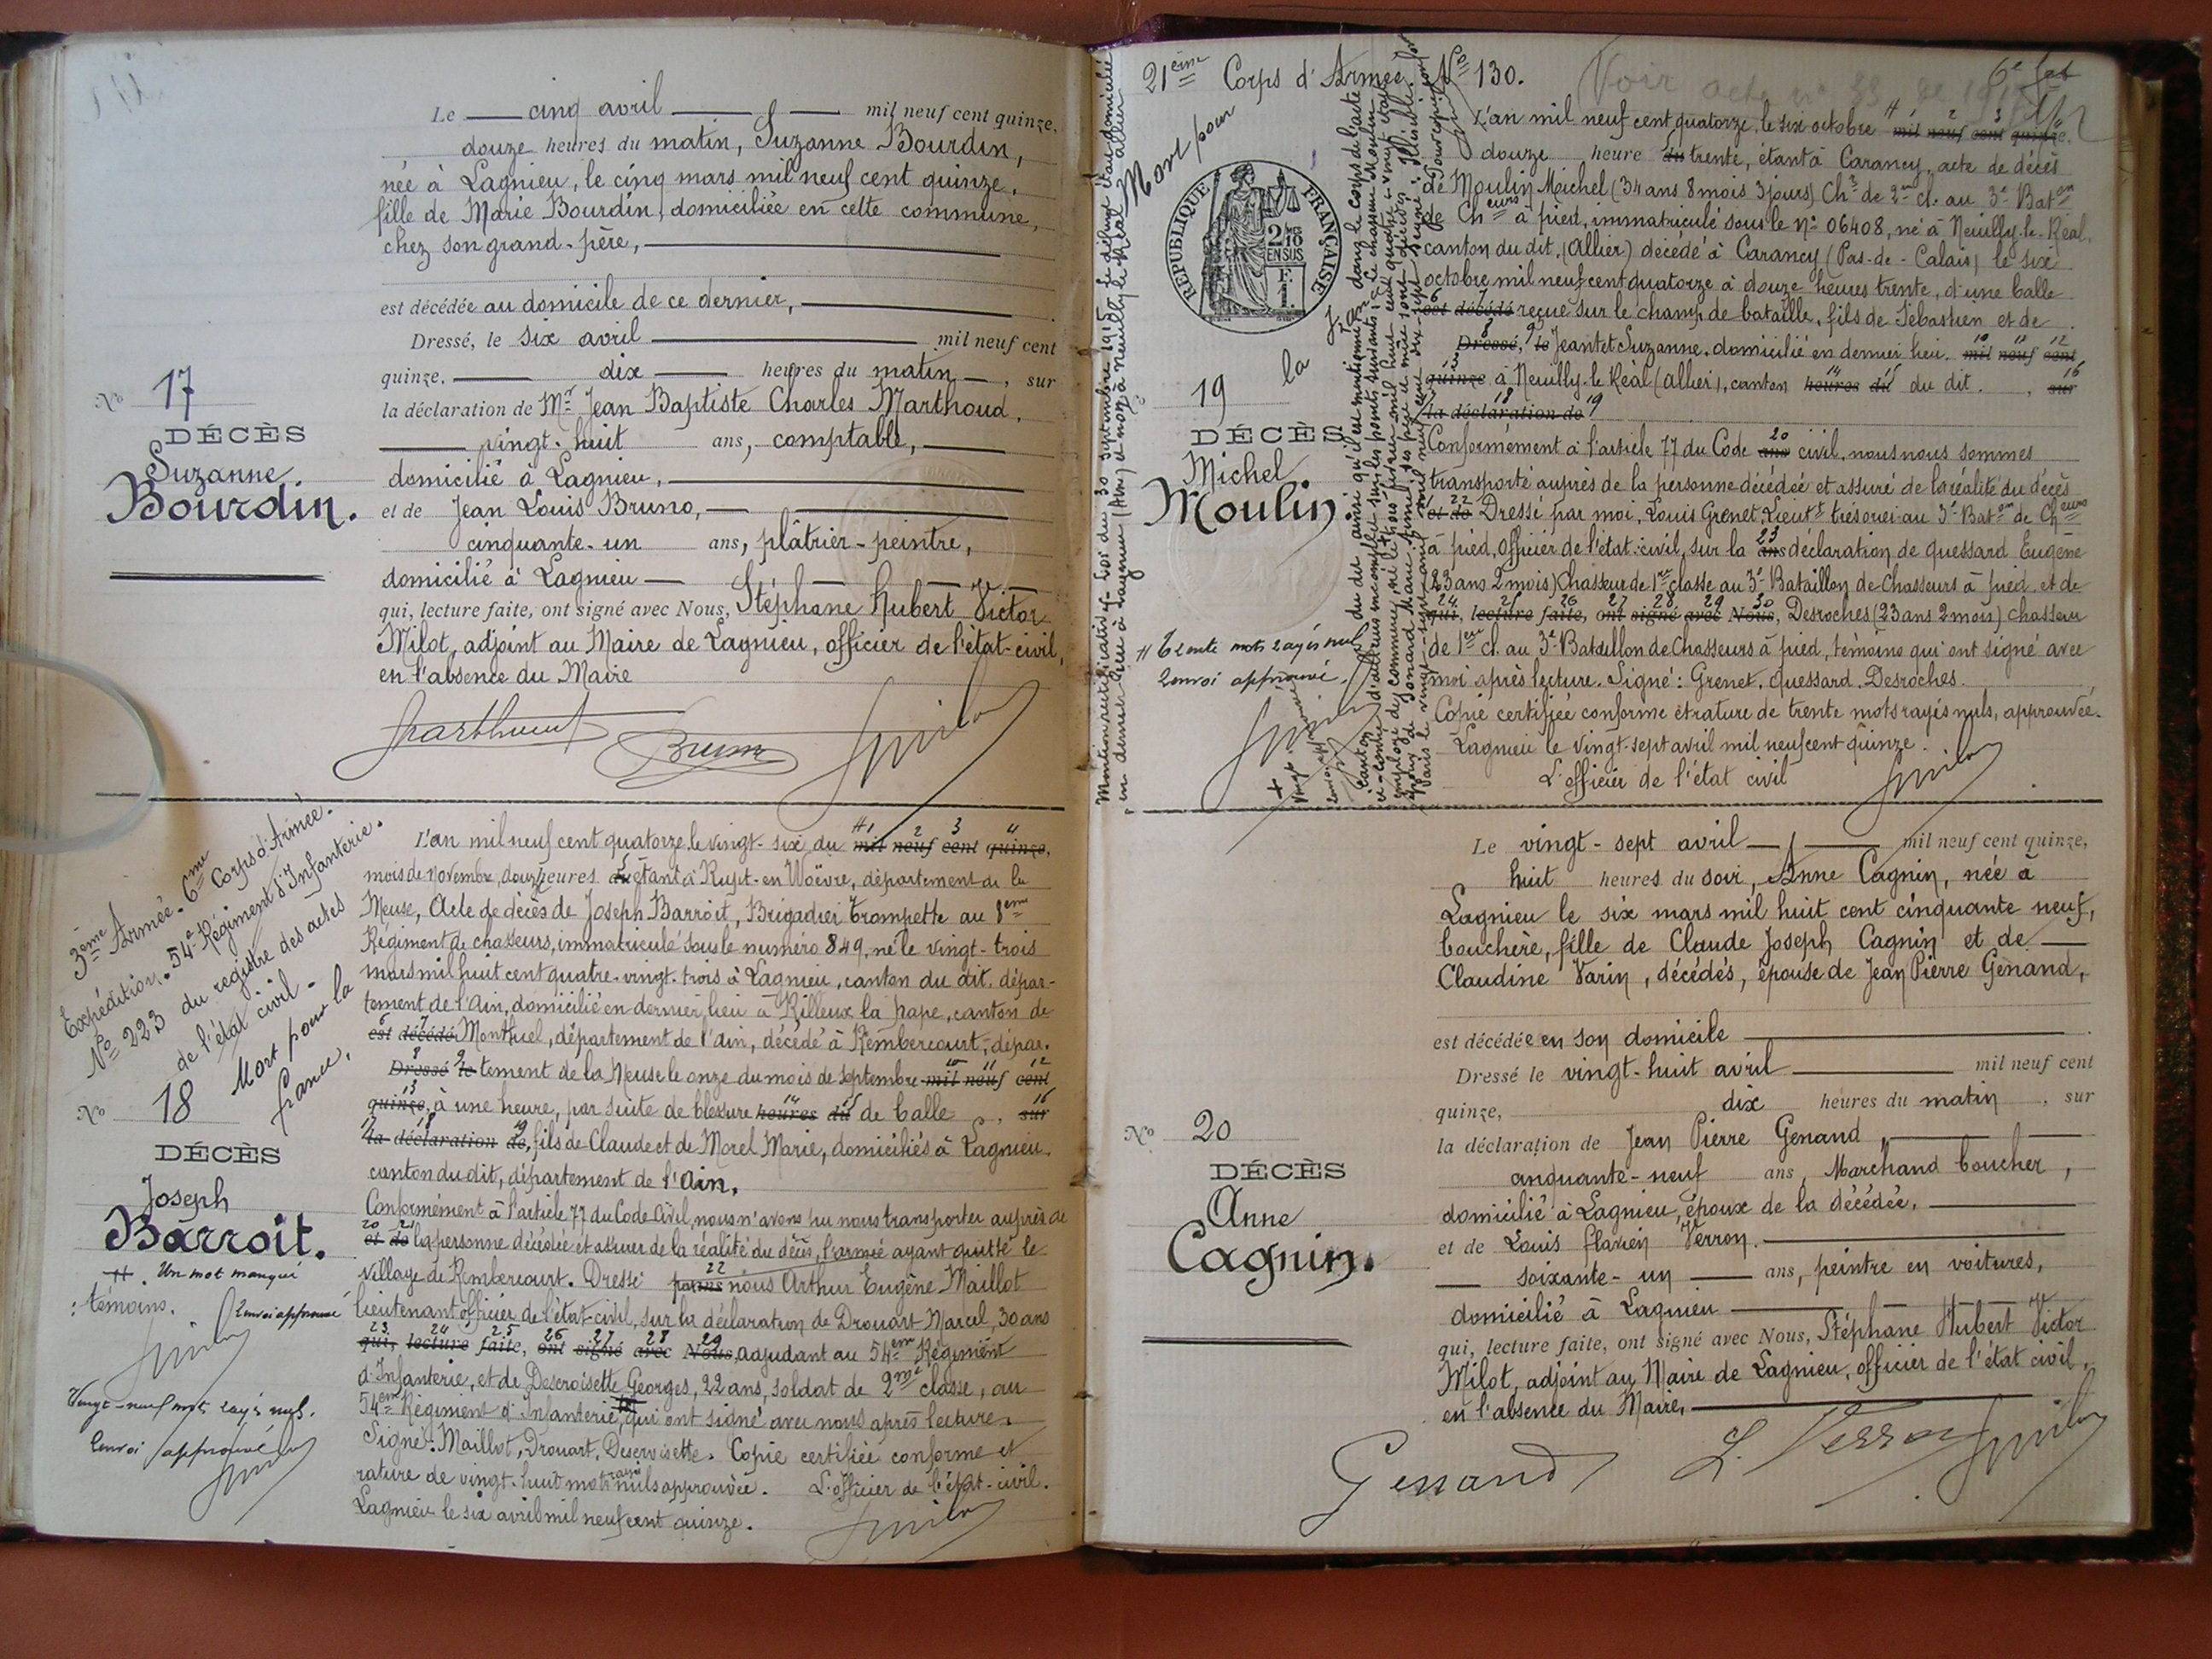 Le cinq avril mil neuf cent quinze,
douze heures du matin, Suzanne Bourdin,
née à Lagnieu, le cinq mars mil neuf cent quinze,
fille de Marie Bourdin, domiciliée en cette commune,
chez son grand-père,
est décédée au domicile de ce dernier,
Dressé, le six avril mil neuf cent
quinze, dix heures du matin, sur
la déclaration de Mr Jean Baptiste Charles Marthoud,
vingt-huit ans, comptable,
domicilié à Lagnieu,
et de Jean Louis Bruno,
cinquante-un ans, plâtrier-peintre,
domicilié à Lagnieu
qui, lecture faite, ont signé avec Nous, Stéphane Hubert Victor
Milot, adjoint au Maire de Lagnieu, officier de l'état-civil,
en l'absence du Maire
No 17
DÉCÈS
Suzanne
Bourdin.
Bruno
3ème Armée. 6me Corps d'Armée.
Expédition. 54e Régiment d'Infanterie.
No 223 du registre des actes
de l'état civil.
Mort pour la
france.
No 18
DÉCÈS
Joseph
Barroit.
H. Un mot manqué
: témoins. Renvoi approuvé
Vingt-neuf mots rayés nuls.
Renvoi approuvé
L'an mil neuf cent quatorze, le vingt-six du mil neuf cent quinze,
mois de novembre, douze heures du étant à Rupt-en Woëvre, département de la
Meuse, Acte de décès de Joseph Barroit, Brigadier trompette au 8eme
Régiment de chasseurs, immatriculé sous le numéro 849, né le vingt-trois
mars mil huit cent quatre-vingt-trois à Lagnieu, canton du dit, dépar-
tement de l'Ain, domicilié en dernier lieu à Rillieux la pape, canton de
est décédé Montluel, département de l'ain, décédé à Rembercourt, dépar-
Dressé le tement de la Meuse le onze du mois de septembre mil neuf cent
quinze, à une heure, par suite de blessure heures du de balle, sur
la déclaration de, fils de Claude et de Morel Marie, domiciliés à Lagnieu,
canton du dit, département de l'Ain.
Conformément à l'article 77 du Code Civil, nous n'avons pu nous transporter auprès de
et de la personne décédée et assurer de la réalité du décès, l'armée ayant quitté le
village de Rembercourt. Dressé par nous Arthur Eugène Maillot
lieutenant officier de l'état-civil, sur la déclaration de Drouart Marcel, 30 ans
qui, lecture faite, ont signé avec Nous, adjudant au 54em Régiment
d'Infanterie, et de Descroisette Georges, 22 ans, soldat de 2me classe, au
54em Régiment d'Infanterie, qui ont signé avec nous après lecture.
Signé: Maillot, Drouart, Descroisette. Copie certifiée conforme et
rature de vingt-huit mots rayés nuls approuvée. L'officier de l'état-civil.
Lagnieu le six avril mil neuf cent quinze.
21ème Corps d'Armée. No 130.
Voir acte no
Mort pour
la
RÉPUBLIQUE FRANÇAISE
2/10 EN SUS
No 19
DÉCÈS
Michel
Moulin.
H trente mots rayés nuls
Renvoi approuvé.
L'an mil neuf cent quatorze, le six octobre mil neuf cent quinze,
douze heure du trente, étant à Carancy, acte de décès
de Moulin Michel (34 ans 8 mois 3 jours) Chr de 2me cl. au 3e Baton
de Cheurs à pied, immatriculé sous le no 06408, né à Neuilly-le-Réal,
canton du dit, (Allier) décédé à Carancy (Pas-de-Calais) le six
octobre mil neuf cent quatorze à douze heures trente, d'une balle
est décédé reçue sur le champ de bataille, fils de Sébastien et de
Dressé, le Jeantet Suzanne, domicilié en dernier lieu mil neuf cent,
quinze à Neuilly-le Réal (Allier), canton heures du du dit, sur
la déclaration de
Conformément à l'article 77 du Code ans civil, nous nous sommes
transporté auprès de la personne décédée et assuré de la réalité du décès
et de Dressé par moi, Louis Grenet, Lieutt trésorier au 3e Baton de Cheurs
à pied, officier de l'état-civil, sur la ans déclaration de Quessard Eugène
(23 ans 2 mois) Chasseur de 1re classe au 3e Bataillon de Chasseurs à pied et de
qui, lecture faite, ont signé avec Nous, Desroches (23 ans 2 mois) chasseur
de 1ere cl. au 3e Bataillon de Chasseurs à pied, témoins qui ont signé avec
moi après lecture. Signé: Grenet, Quessard, Desroches.
Copie certifiée conforme et rature de trente mots rayés nuls, approuvée.
Lagnieu le vingt-sept avril mil neuf cent quinze.
L'officier de l'état civil
No 20
DÉCÈS
Anne
Cagnin.
Le vingt-sept avril mil neuf cent quinze,
huit heures du soir, Anne Cagnin, née à
Lagnieu le six mars mil huit cent cinquante neuf,
bouchère, fille de Claude Joseph Cagnin et de
Claudine Varin, décédés, épouse de Jean Pierre Genand,
est décédée en son domicile
Dressé le vingt-huit avril mil neuf cent
quinze, dix heures du matin, sur
la déclaration de Jean Pierre Genand,
cinquante-neuf ans, Marchand boucher,
domicilié à Lagnieu, époux de la décédée,
et de Louis flavien Verron,
soixante-un ans, peintre en voitures,
domicilié à Lagnieu
qui, lecture faite, ont signé avec Nous, Stéphane Hubert Victor
Milot, adjoint au Maire de Lagnieu, officier de l'état civil,
en l'absence du Maire,
Genand L. Verron